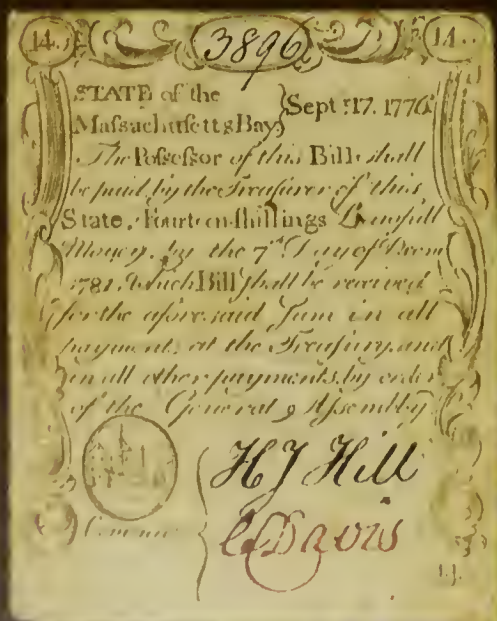 14. 3896 14.
STATE of the
Maſsachuſetts Bay. } Sept.r 17. 1776.
The Poſseſsor of this Bill shall
be paid by the Treaſurer of this
State, Fourteen ſhillings Lawfull
Money, by the 7th Day of Decem
1781. Which Bill ſhall be received
for the aforesaid Sum in all
payments at the Treaſury, and
in all other payments by order
of the General Aſsembly
H J Hill
Davis